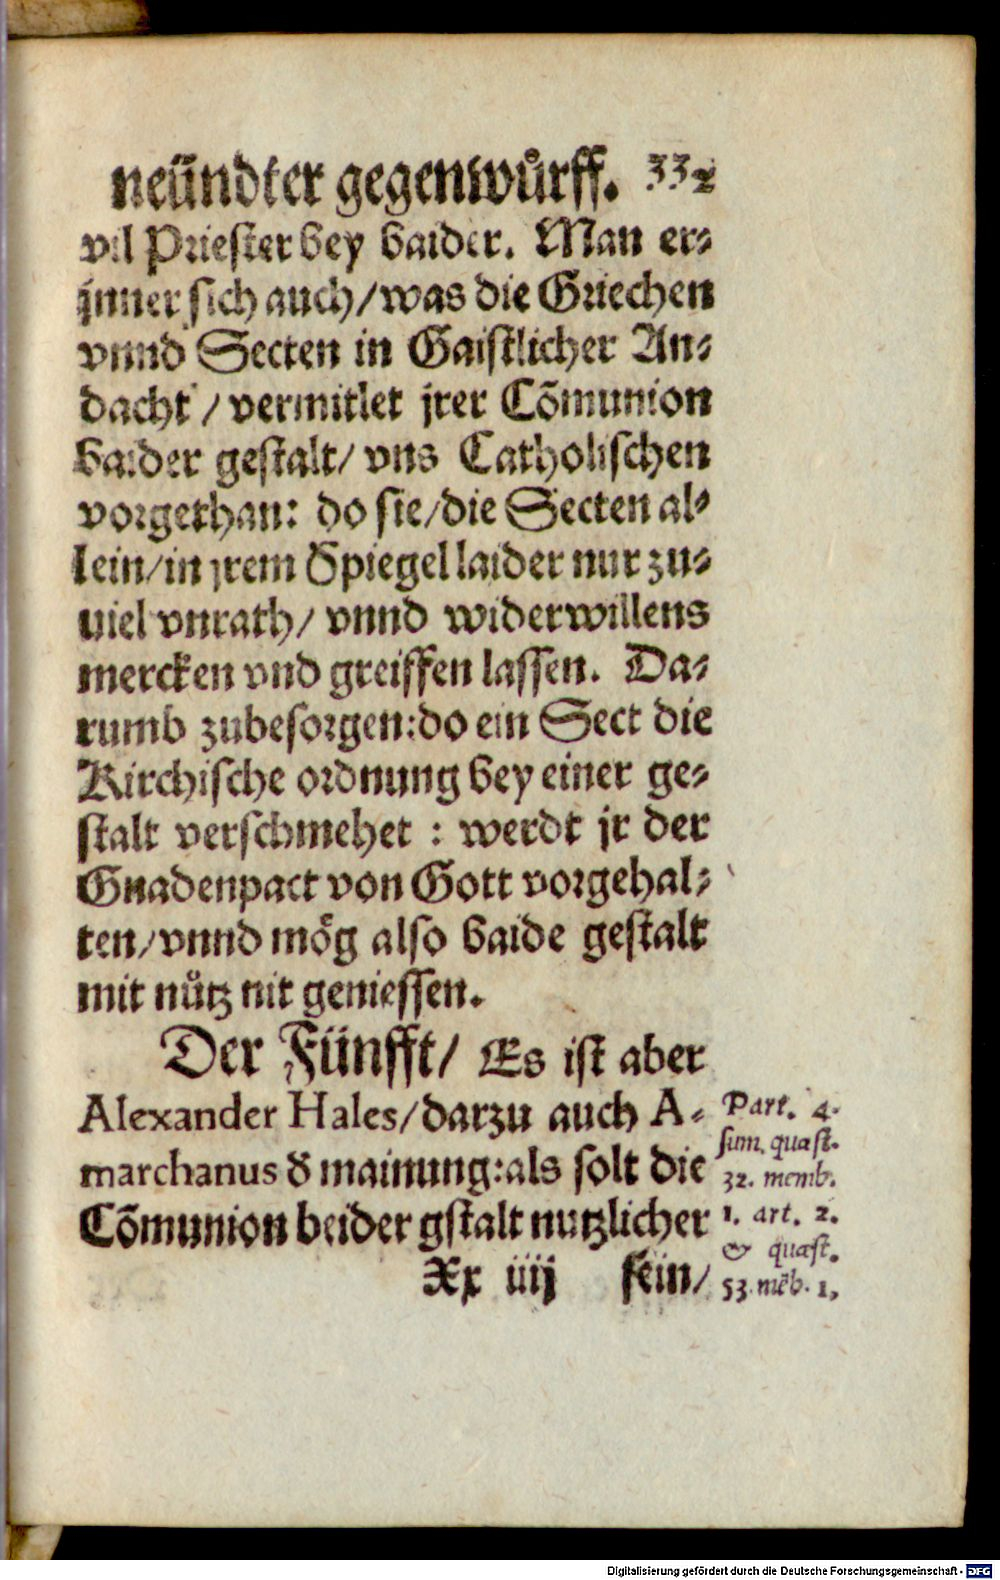 neündter gegenwůrff.
vil Priester bey baider. Man er-
jnner sich auch/ was die Griechen
vnnd Secten in Gaistlicher An-
dacht / vermitlet jrer Cõmunion
baider gestalt/ vns Catholischen
vorgethan: do sie/ die Secten al-
lein/ in jrem Spiegel laider nur zu-
uiel vnrath/ vnnd widerwillens
mercken vnd greiffen lassen. Da-
rumb zubesorgen: do ein Sect die
Kirchische ordnung bey einer ge-
stalt verschmehet : werdt jr der
Gnadenpact von Gott vorgehal-
ten/ vnnd mög also baide gestalt
mit nůtz nit geniessen.
Der Fünfft/ Es ist aber
Alexander Hales/ darzu auch A-
marchanus d̕ mainung: als solt die
Cõmunion beider gstalt nutzlicher
Xx iiij sein/
Part. 4.
sum. quæst.
32. memb.
1. art. 2.
& quæst.
53. mẽb. 1,
Digitalisierung gefördert durch die Deutsche Forschungsgemeinschaft - DFG